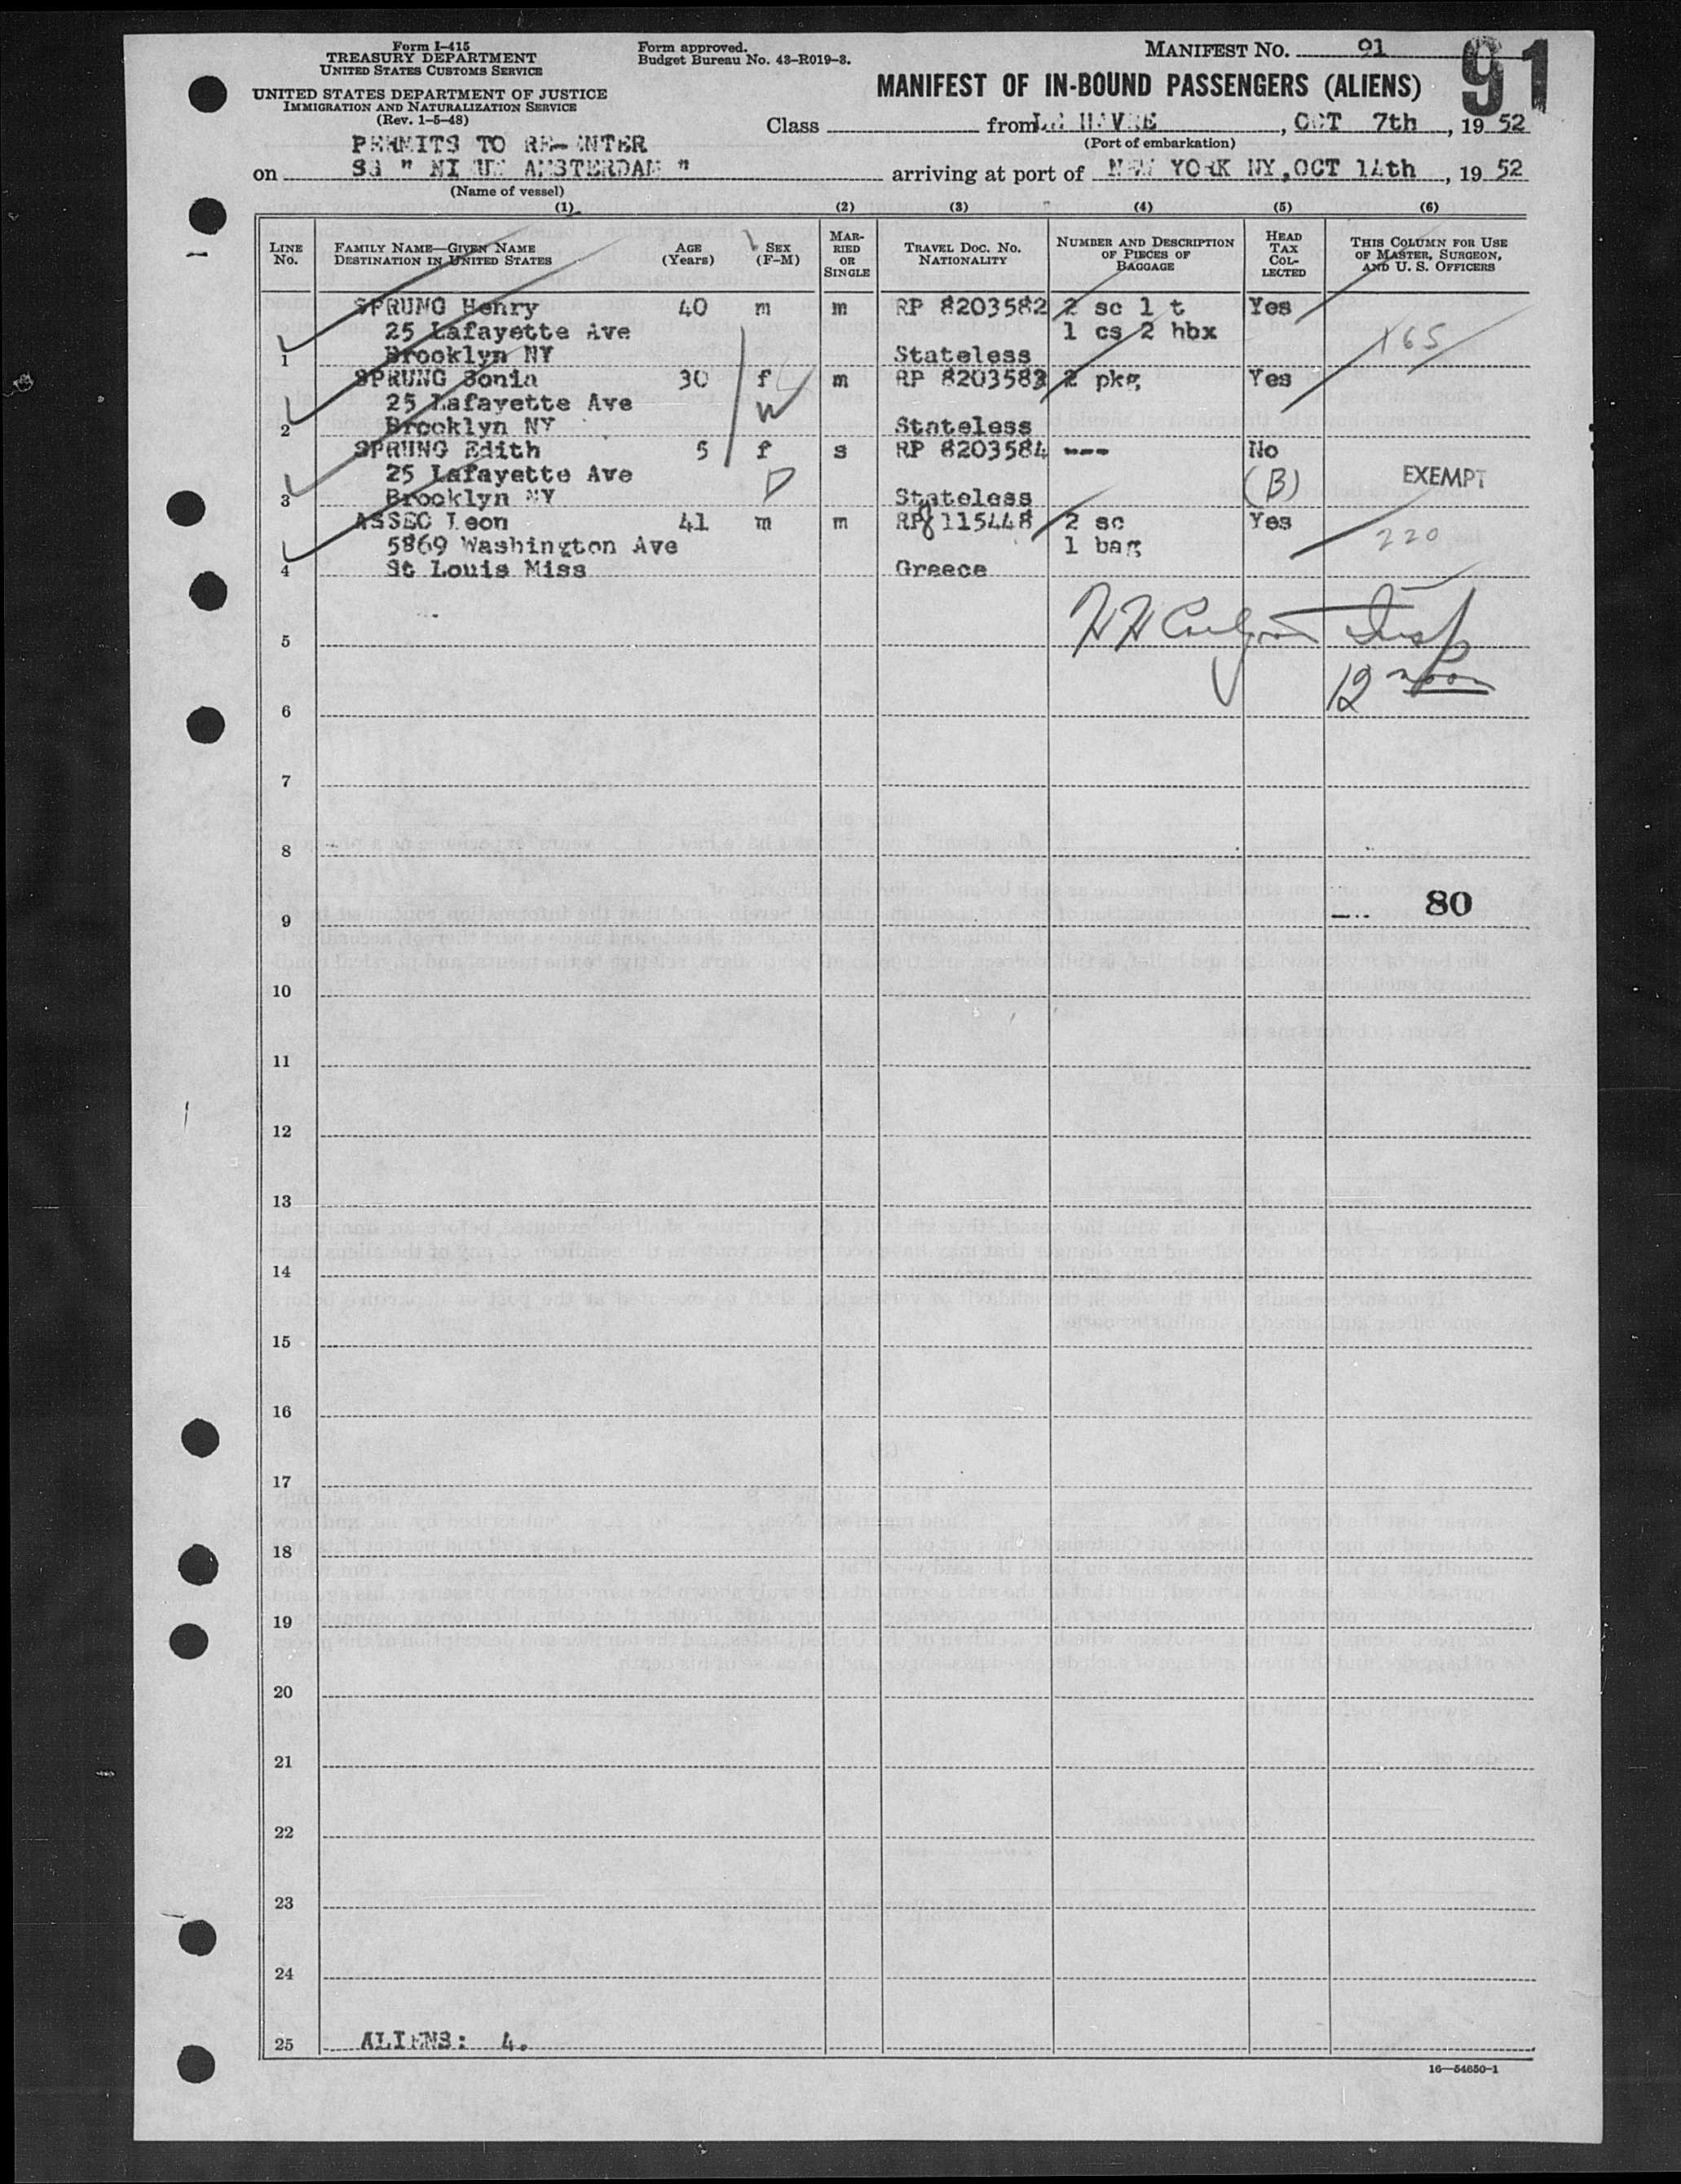 Form I-415
TREASURY DEPARTMENT
UNITED STATES CUSTOMS SERVICE
UNITED STATES DEPARTMENT OF JUSTICE
IMMIGRATION AND NATURALIZATION SERVICE
(Rev. 1-5-48)
Form approved.
Budget Bureau No. 43-R019-3.
MANIFEST NO. 91
91
MANIFEST OF IN-BOUND PASSENGERS (ALIENS)
Class from LE HAVRE, OCT 7th, 19 52
(Port of embarkation)
PERMITS TO RE-ENTER
on SS " NIEUW AMSTERDAM " arriving at port of NEW YORK NY, OCT 14th, 19 52
(Name of vessel)
(1) (2) (3) (4) (5) (6)
LINE No. FAMILY NAME—GIVEN NAME DESTINATION IN UNITED STATES AGE (Years) SEX (F-M) MARRIED OR SINGLE TRAVEL DOC. NO. NATIONALITY NUMBER AND DESCRIPTION OF PIECES OF BAGGAGE HEAD TAX COLLECTED THIS COLUMN FOR USE OF MASTER, SURGEON, AND U. S. OFFICERS
SPRUNG Henry 40 m m RP 8203582 2 sc 1 t Yes
25 Lafayette Ave 1 cs 2 hbx 165
1 Brooklyn NY Stateless
SPRUNG Sonia 30 f m RP 8203583 2 pkg Yes
25 Lafayette Ave W
2 Brooklyn NY Stateless
SPRUNG Edith 5 f s RP 8203584 --- No
25 Lafayette Ave D (B) EXEMPT
3 Brooklyn NY Stateless
ASSEO Leon 41 m m RP 8115448 2 sc Yes
5869 Washington Ave 1 bag 220
4 St Louis Miss Greece
5 Insp
6 12 noon
7
8
9 80
10
11
12
13
14
15
16
17
18
19
20
21
22
23
24
25 ALIENS: 4.
16—54650-1